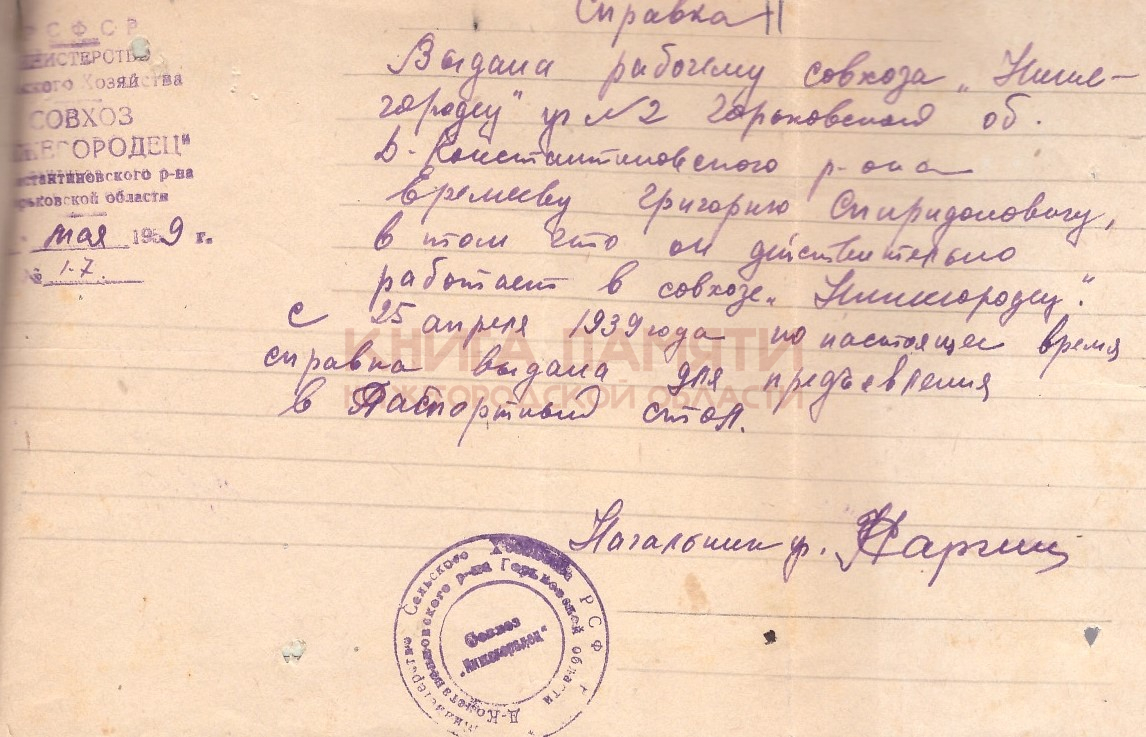 Р С Ф С Р
МИНИСТЕРСТВО
Сельского Хозяйства
СОВХОЗ
„НИЖЕГОРОДЕЦ"
Д-Константиновского р-на
Горьковской области
мая 1959 г.
№ 17.
Справка
Выдана рабочему совхоза „Ниже-
городец" уч №2 Горьковской об.
Д-Константиновского р-она
Еремееву Григорию Спиридоновичу,
в том что он действительно
работает в совхозе „Нижегородец".
с 25 апреля 1939 года по настоящее время
справка выдана для предъевления
в Паспортный стол.
КНИГА ПАМЯТИ
НИЖЕГОРОДСКОЙ ОБЛАСТИ
Начальник уч.
Министерство Сельского Хозяйства РСФСР
Д-Константиновского р-на Горьковской области
Совхоз
„Нижегородец"